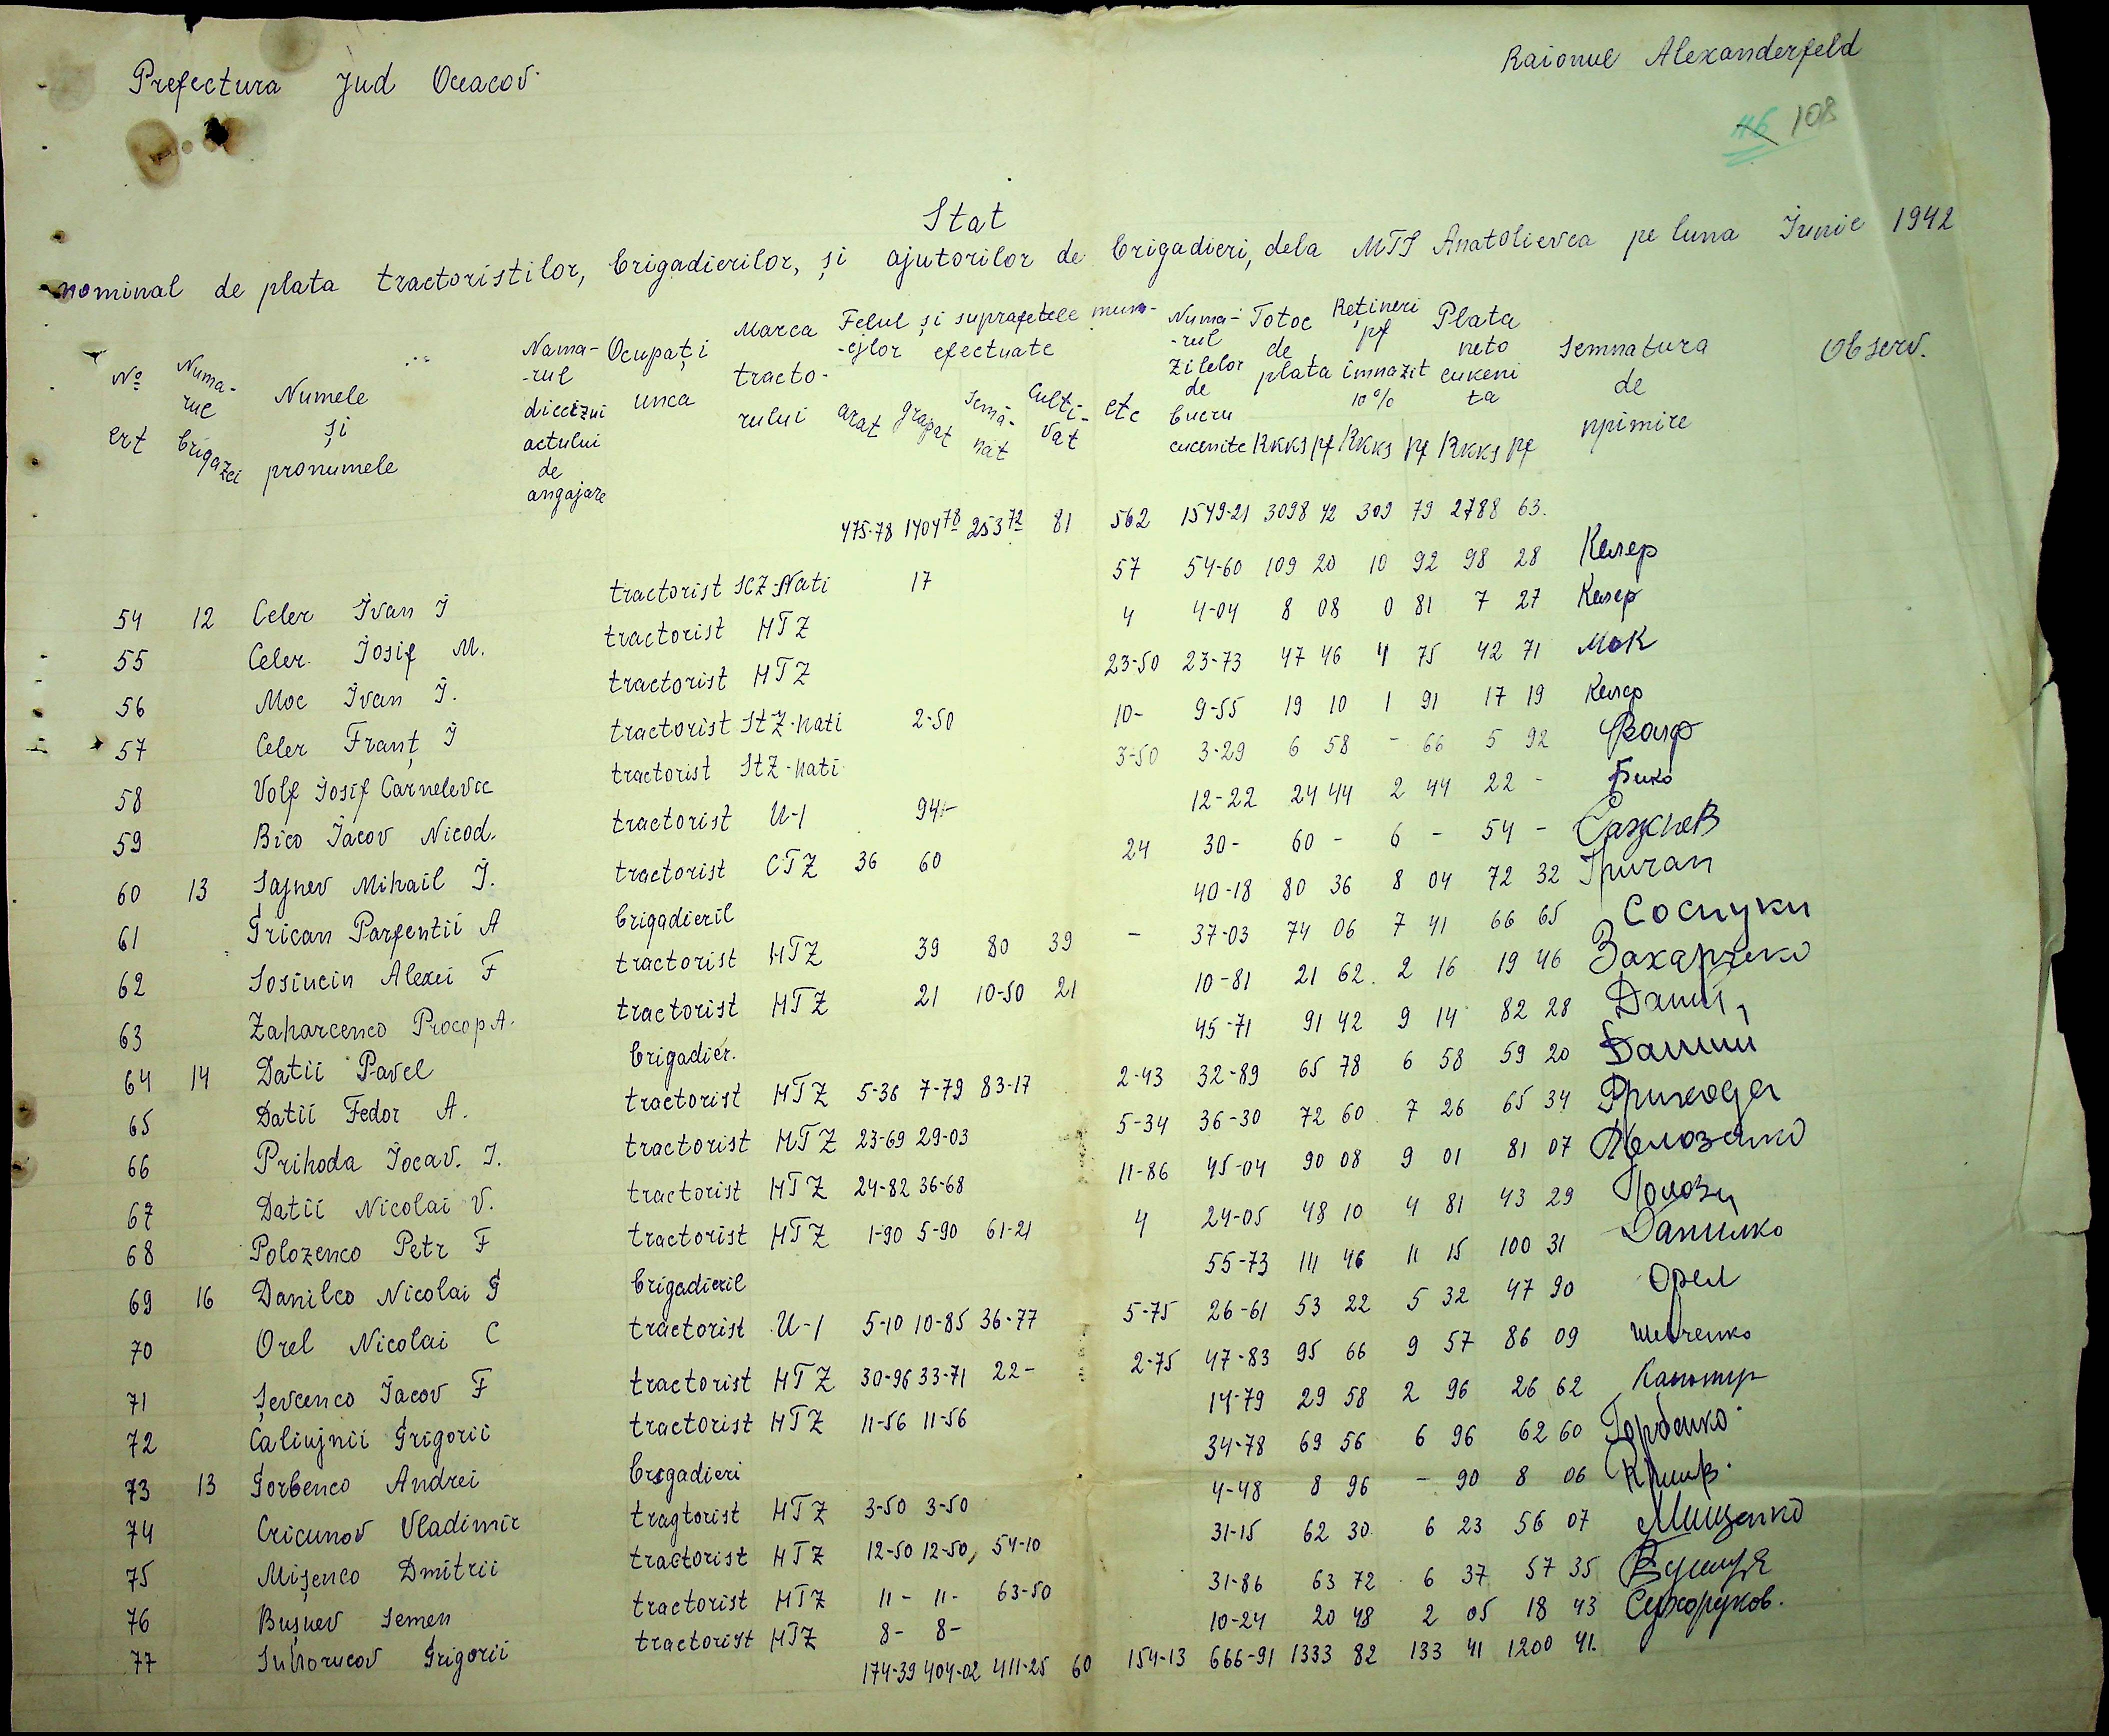 Prefectura Jud Oceacov
Raionul Alexanderfeld
116 108
Stat
nominal de plata tractoristilor, brigadierilor, și ajutorilor de brigadieri, dela MTS Anatolievca pe luna Iunie 1942
Nº crt Numarul brigazei Numele și pronumele Numarul actului de angajare Ocupați unca Marca tractorului Felul și suprafetele efectuate arat grapat semănat Cultivat etc Numarul zilelor de lucru Totoc de plata RKKS pf Rețineri pf 10% RKKS pf Plata neto RKKS pf Semnatura de Observ.
475-78 1404 78 253 72 81 562 1549-21 3098 42 309 79 2788 63.
54 12 Celer Ivan I tractorist SCZ-Nati 17 57 54-60 109 20 10 92 98 28 Келер
55 Celer Iosif M. tractorist HTZ 4 4-04 8 08 0 81 7 27 Келер
56 Moc Ivan I. tractorist HTZ 23-50 23-73 47 46 4 75 42 71 Мок
57 Celer Franț I tractorist StZ-nati 2-50 10- 9-55 19 10 1 91 17 19 Келер
58 Volf Iosif Carnelevic tractorist StZ-nati 3-50 3-29 6 58 - 66 5 92 Волф
59 Bico Iacov Nicod. tractorist U-1 94- 12-22 24 44 2 44 22 - Бико
60 13 Sajnev Mihail I. tractorist CTZ 36 60 24 30- 60 - 6 - 54 - Сажнев
61 Grican Parfentii A brigadieril 40-18 80 36 8 04 72 32 Гричан
62 Sosiucin Alexei F tractorist HTZ 39 80 39 - 37-03 74 06 7 41 66 65
63 Zaharcenco Procop A. tractorist HTZ 21 10-50 21 10-81 21 62 2 16 19 46 Захарченко
64 14 Datii Pavel brigadier. 45-71 91 42 9 14 82 28
65 Datii Fedor A. tractorist HTZ 5-36 7-79 83-17 2-43 32-89 65 78 6 58 59 20
66 Prihoda Iocav. I. tractorist HTZ 23-69 29-03 5-34 36-30 72 60 7 26 65 34 Приходя
67 Datii Nicolai V. tractorist HTZ 24-82 36-68 11-86 45-04 90 08 9 01 81 07
68 Polozenco Petr F tractorist HTZ 1-90 5-90 61-21 4 24-05 48 10 4 81 43 29
69 16 Danilco Nicolai G brigadieril 55-73 111 46 11 15 100 31 Данилко
70 Orel Nicolai C tractorist U-1 5-10 10-85 36-77 5-75 26-61 53 22 5 32 47 90 Орел
71 Șevcenco Iacov F tractorist HTZ 30-96 33-71 22- 2-75 47-83 95 66 9 57 86 09 Шевченко
72 Caliujnii Grigorii tractorist HTZ 11-56 11-56 14-79 29 58 2 96 26 62
73 13 Gorbenco Andrei brigadieri 34-78 69 56 6 96 62 60 Горбенко
74 Cricunov Vladimir tragtorist HTZ 3-50 3-50 4-48 8 96 - 90 8 06
75 Mișenco Dmitrii tractorist HTZ 12-50 12-50 54-10 31-15 62 30 6 23 56 07 Мищенко
76 Bușuev Semen tractorist HTZ 11- 11- 63-50 31-86 63 72 6 37 57 35
77 Suhorucov Grigorii tractorist HTZ 8- 8- 10-24 20 48 2 05 18 43 Сухоруков.
174-39 404-02 411-25 60 154-13 666-91 1333 82 133 41 1200 41.